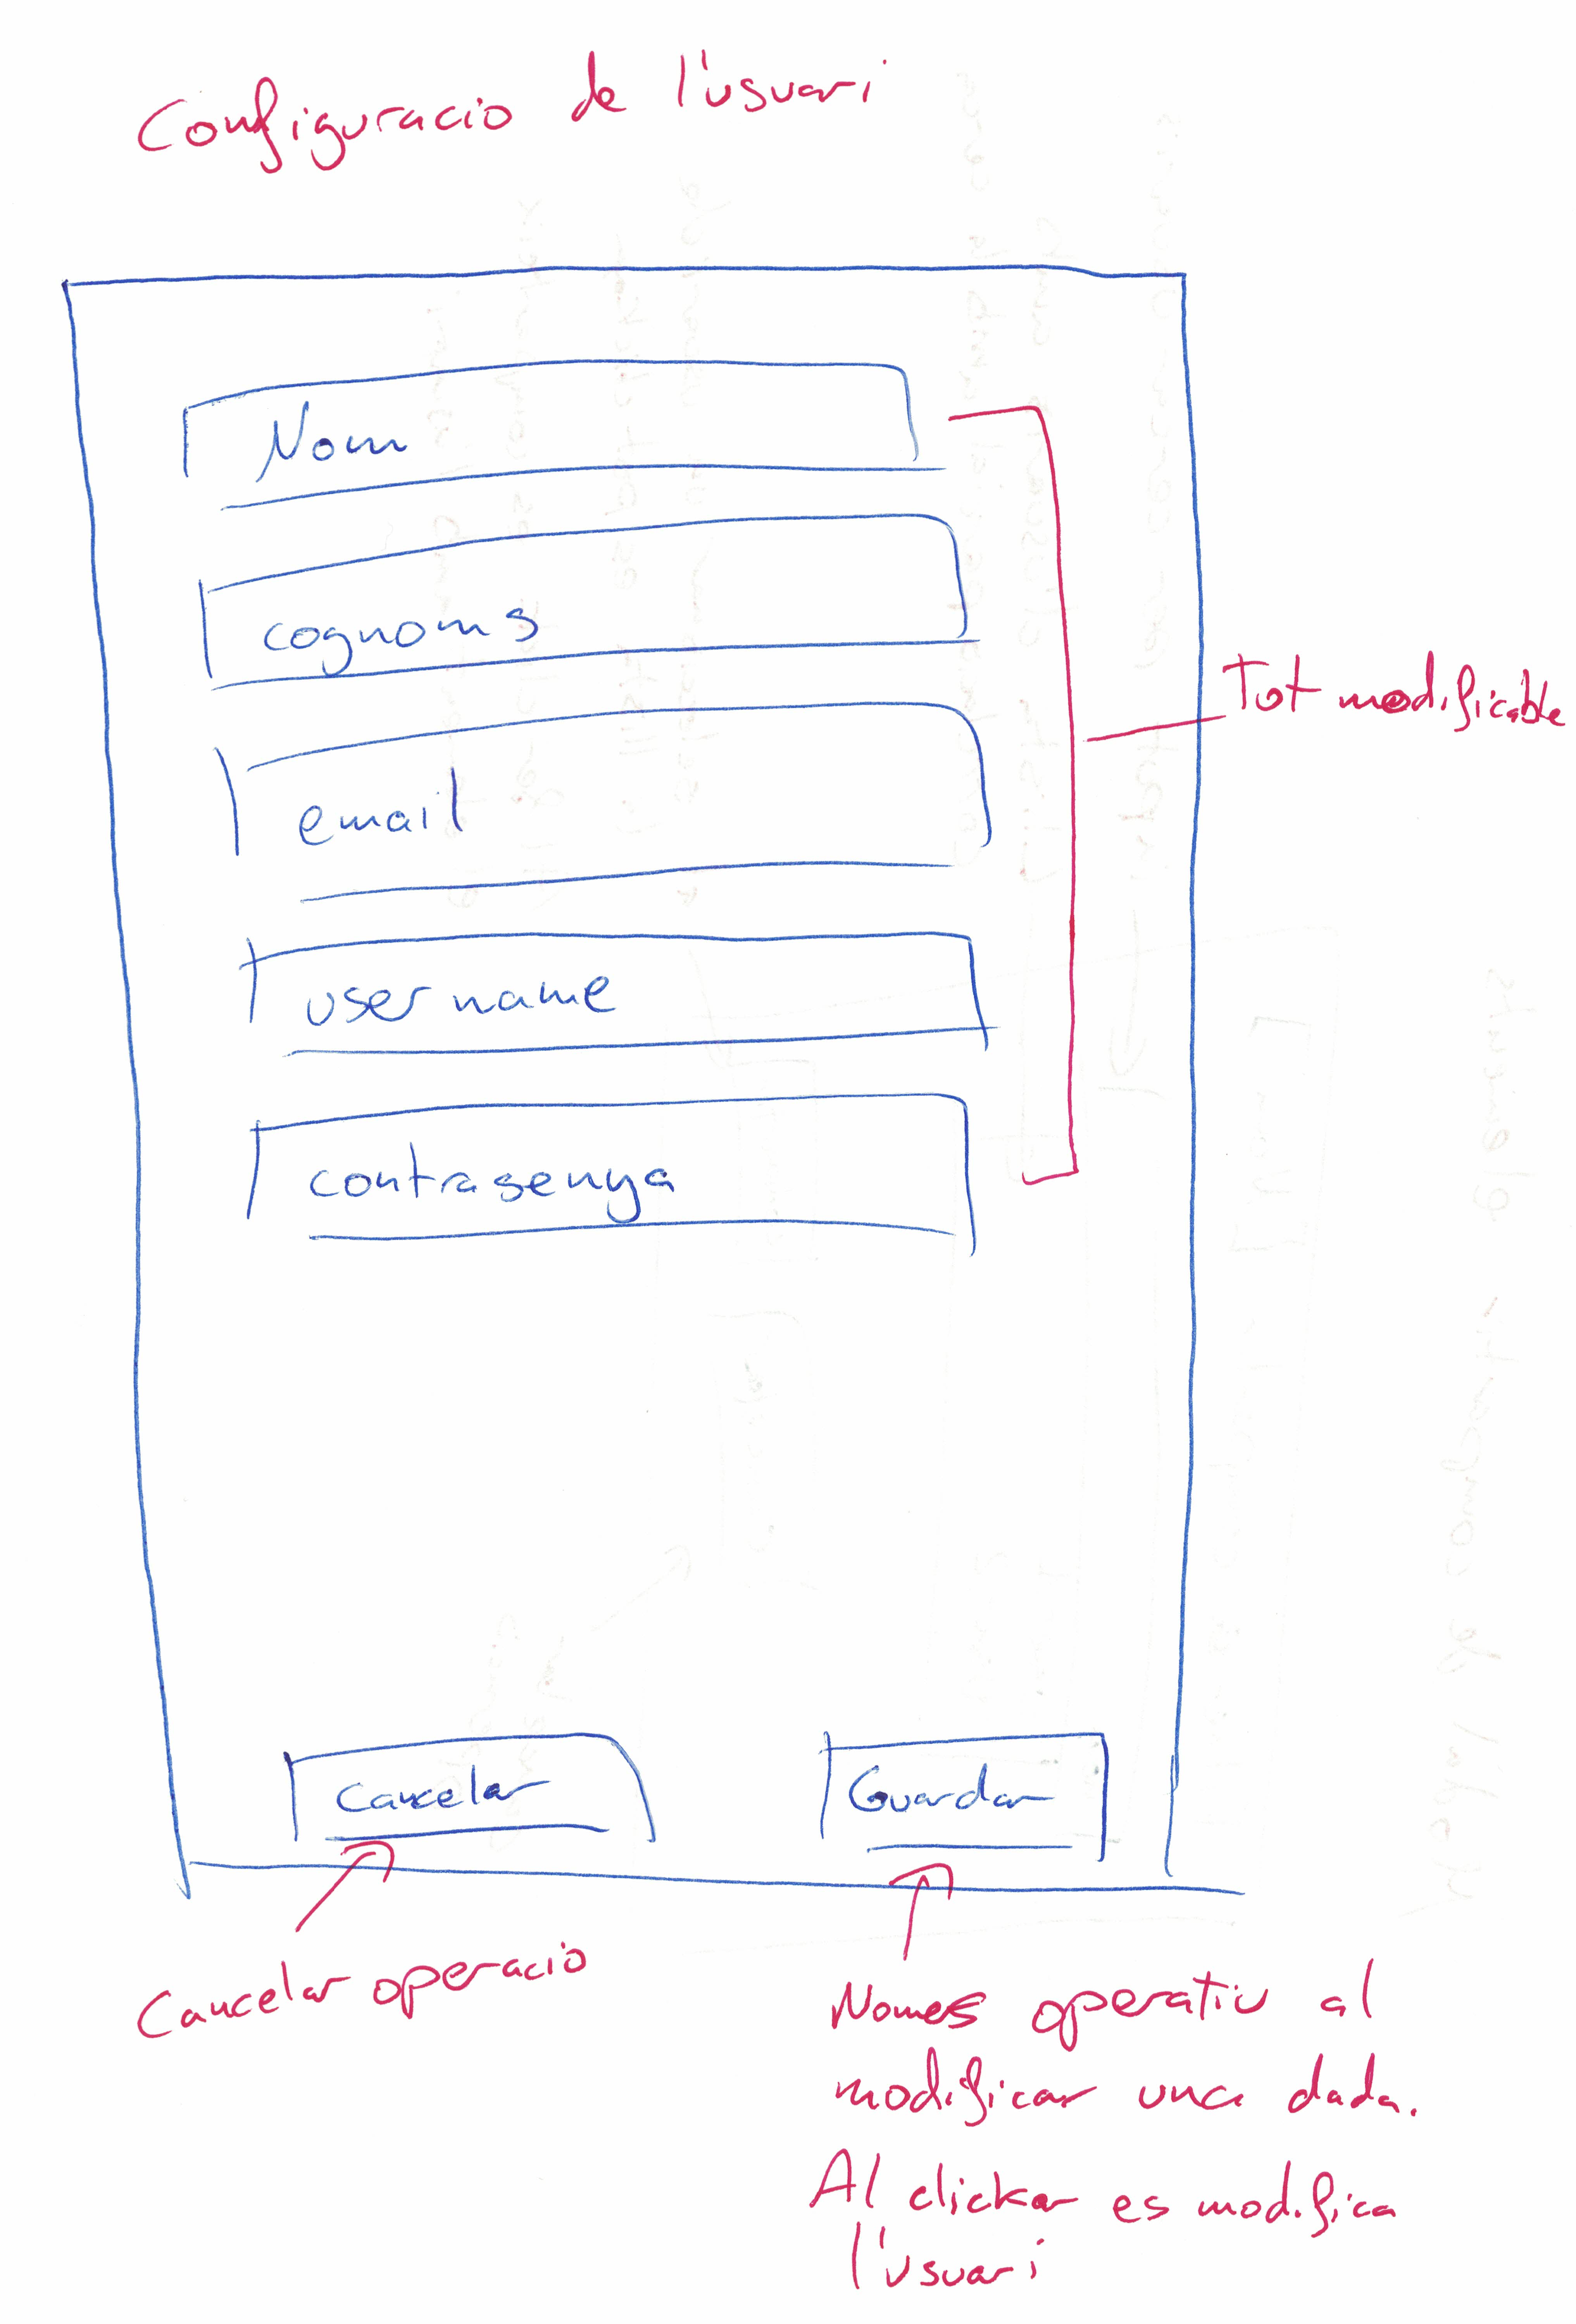 Configuracio de l'usuari
Nom
cognoms
email
Tot modificable
username
contrasenya
Cancelar
Guardar
Cancelar operacio
Nomes operatiu al
modificar una dada.
Al clickar es modifica
l'usuari